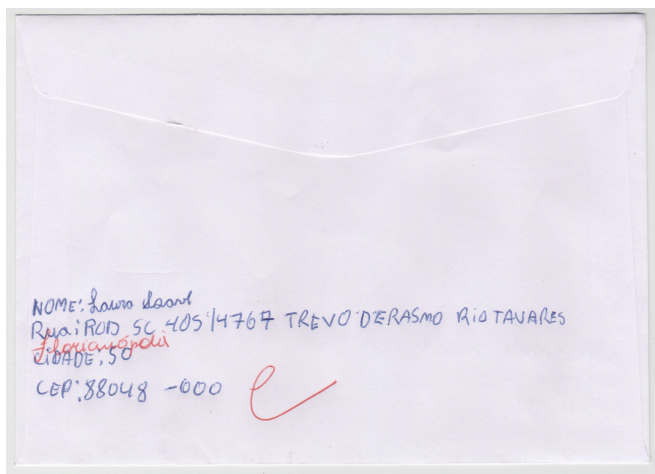 NOME: Lauro
Rua: ROD SC 405 4767 TREVO DERASMO RIO TAVARES
Florianópolis
CIDADE, SC
CEP: 88048 -000